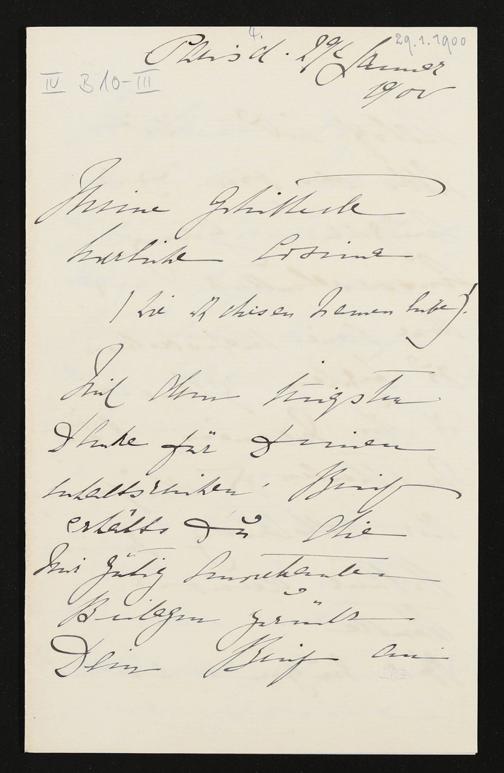 4.
29.1.1900
29t Januar
1900
IV B 10-III
Meine geliebteste
herrliche Cosima
(wie ich diesen Namen liebe)!
Mit dem innigsten
Danke für Deinen
inhaltsreichen Brief
erhälts Du die
mir gütig anvertrauten
Beilagen zurück
Dein Brief an